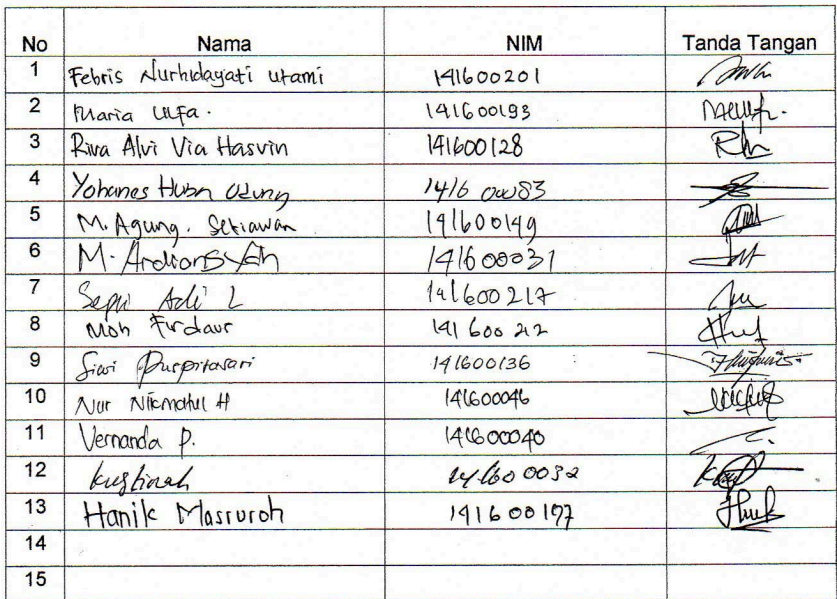 No Nama NIM Tanda Tangan
1 Febris Nurhidayati Utami 141600201
2 Maria Ulfa. 141600193
3 Riva Alvi Via Hasvin 141600128
4 Yohanes Hubn 1416 00083
5 M. Agung. Setiawan 141600149
6 M. Ardiansyah 141600031
7 Septi Adi L 141600217
8 Moh Firdaus 141 600 212
9 Siwi Puspitasari 141600136
10 Nur Nikmatul H 141600046
11 Vernanda P. 141600040
12 kustinah 141600032
13 Hanik Masruroh 141600197
14
15